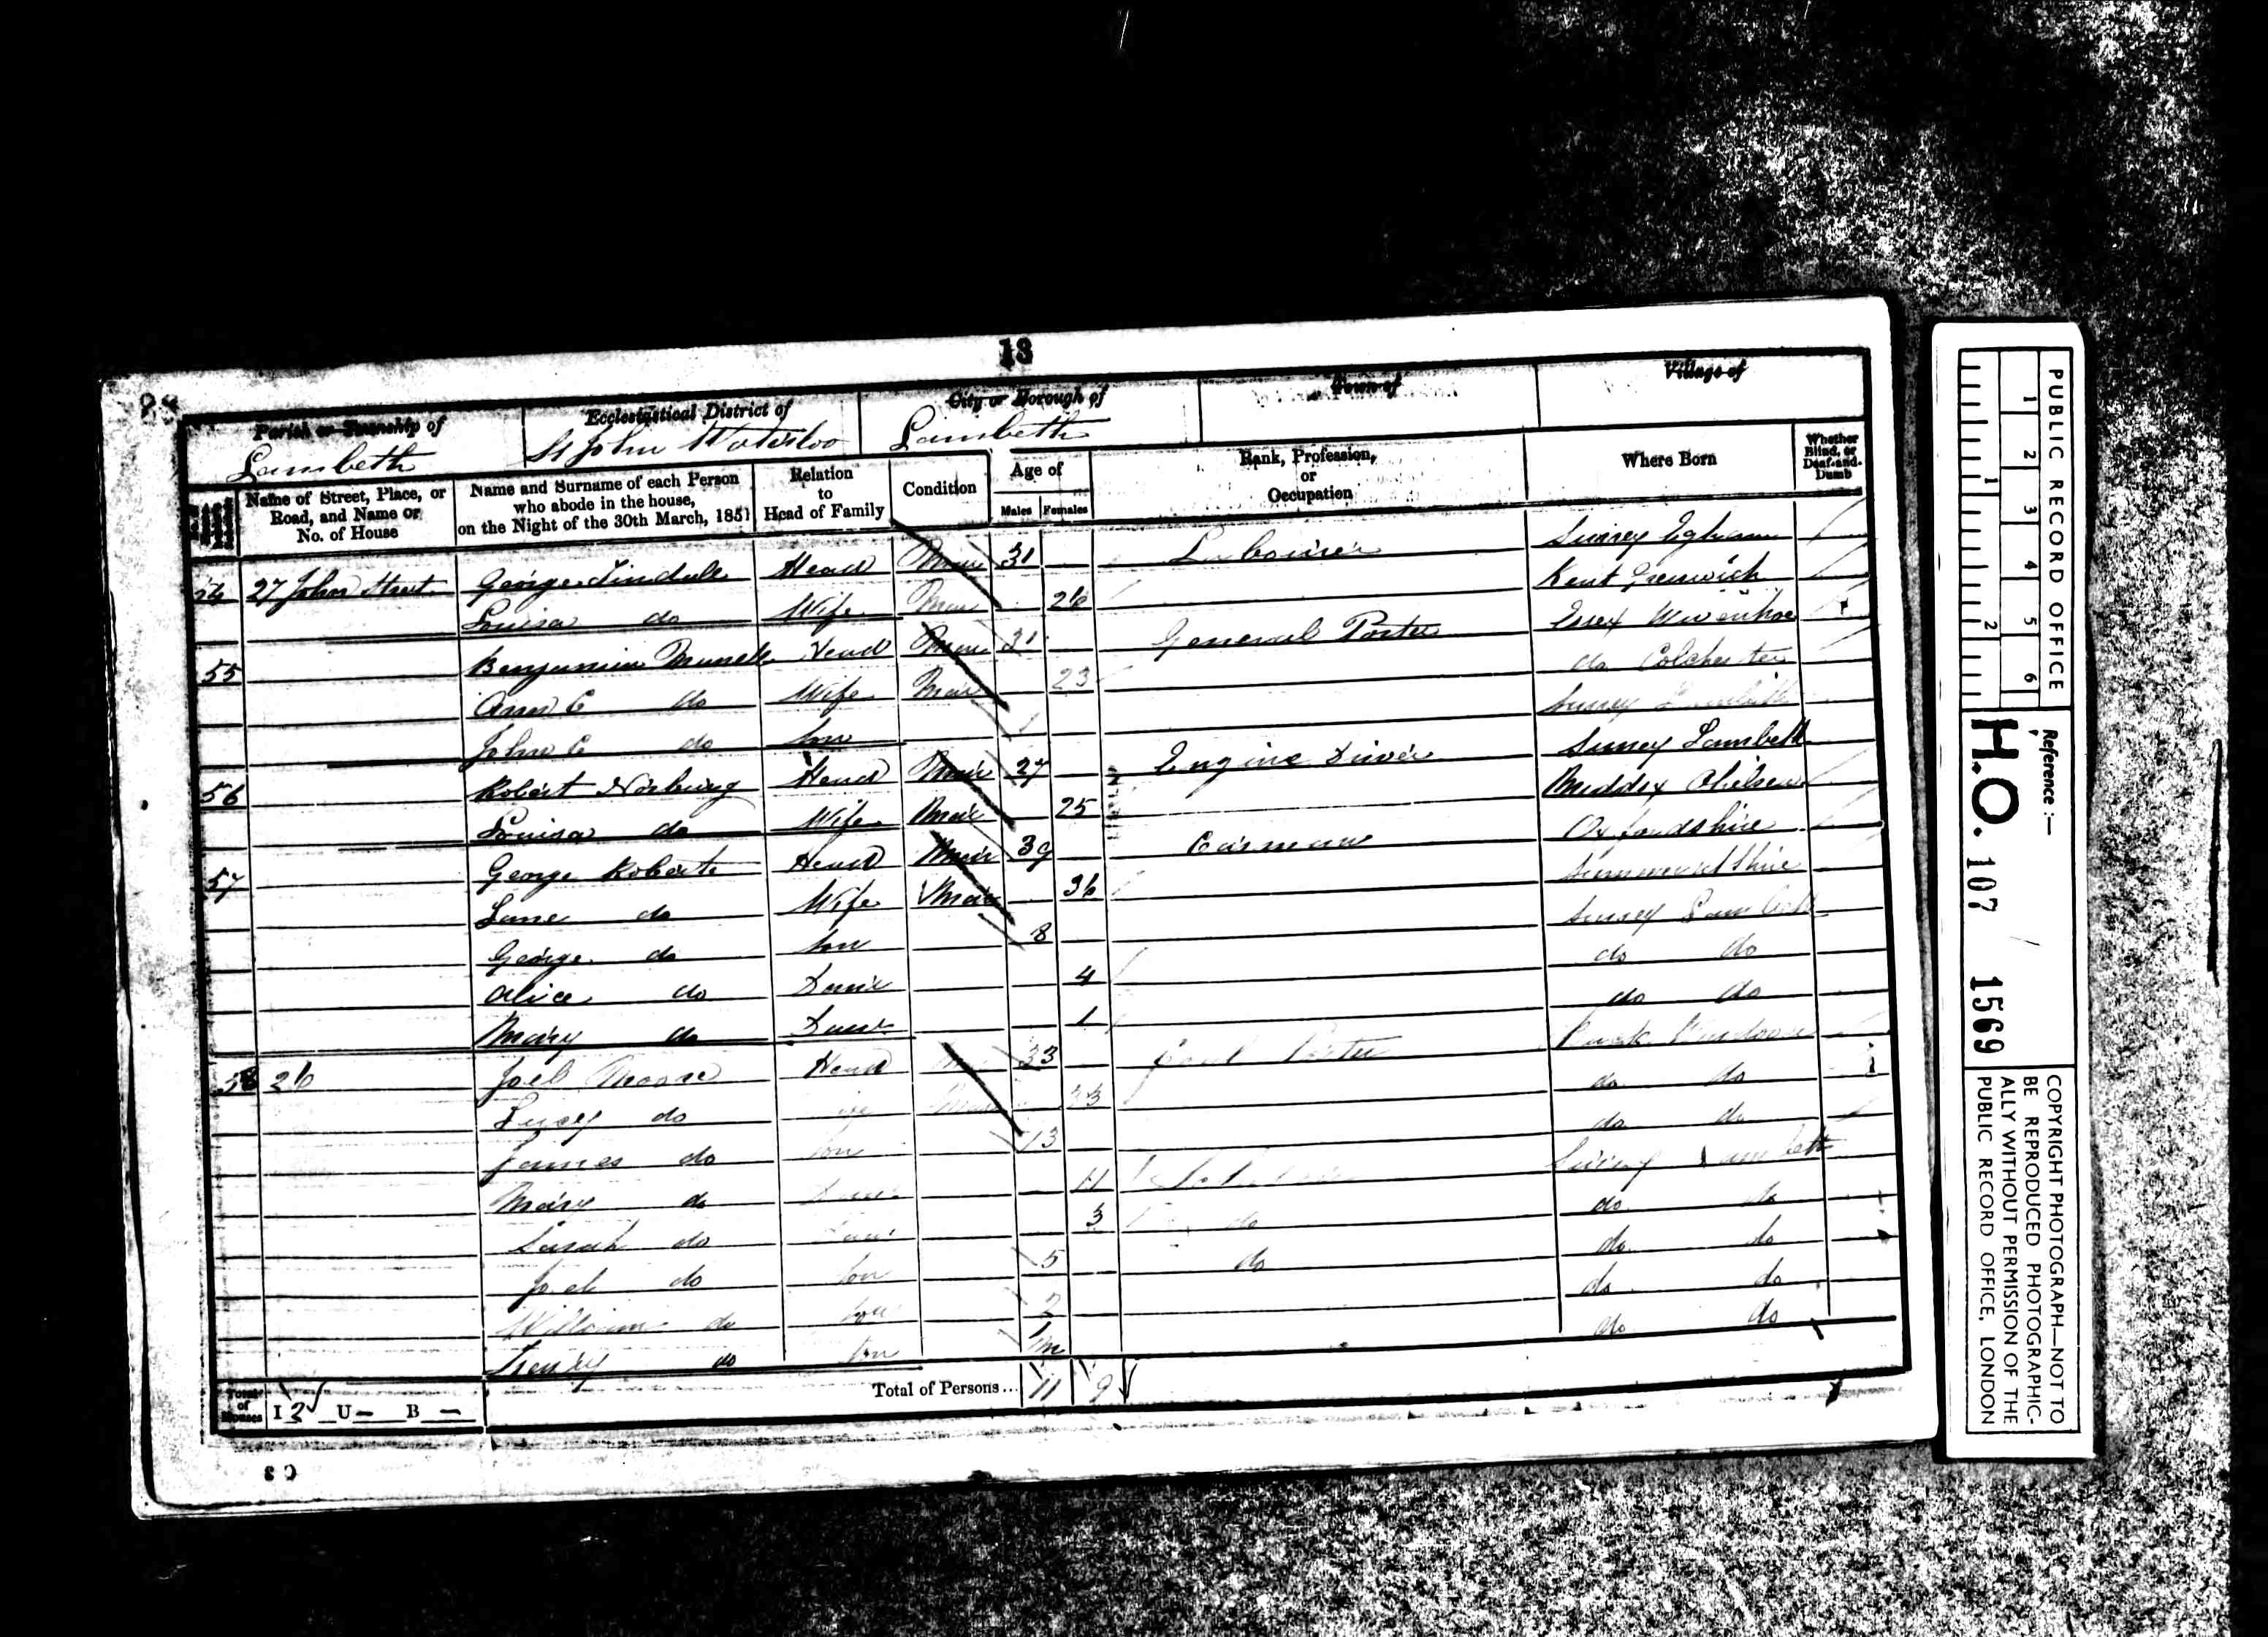 13
Parish or Township of Ecclesiastical District of City or Borough of Town of Village of
Lambeth St John Waterloo Lambeth
Name of Street, Place, or Road, and Name or No. of House
Name and Surname of each Person who abode in the house, on the Night of the 30th March, 1851
Relation to Head of Family
Condition
Age of
Males Females
Rank, Profession, or Occupation
Where Born
Whether Blind, or Deaf-and-Dumb
27 John Street George Tindale Head Mar 31 Labourer Surrey Egham
Louisa do Wife Mar 26 Kent Greenwich
55 Benjamin Head Mar 31 General Porter Essex Wivenhoe
Ann C do Wife Mar 23 do Colchester
John C do Son 1 Surrey Lambeth
56 Robert Head Mar 27 Engine Driver Surrey Lambeth
Louisa do Wife Mar 25 Middx Chelsea
57 George Roberts Head Mar 39 Carman Oxfordshire
Jane do Wife Mar 36
George do Son 8 Surrey Lambeth
Alice do Daur 4 do do
Mary do Daur 1 do do
58 26 Joel Moore Head 33 Porter
Lucy do 33 do do
James do Son 13 do do
Mary do 11 Surrey Lambeth
Sarah do 3 do do do
Joel do Son 5 do do do
William do Son do do
Henry do Son do do
Total of Houses I 2 U – B – Total of Persons... 11 9
PUBLIC RECORD OFFICE
1 2 3 4 5 6
1 2
Reference:—
H.O. 107 1569
COPYRIGHT PHOTOGRAPH—NOT TO
BE REPRODUCED PHOTOGRAPHIC-
ALLY WITHOUT PERMISSION OF THE
PUBLIC RECORD OFFICE, LONDON